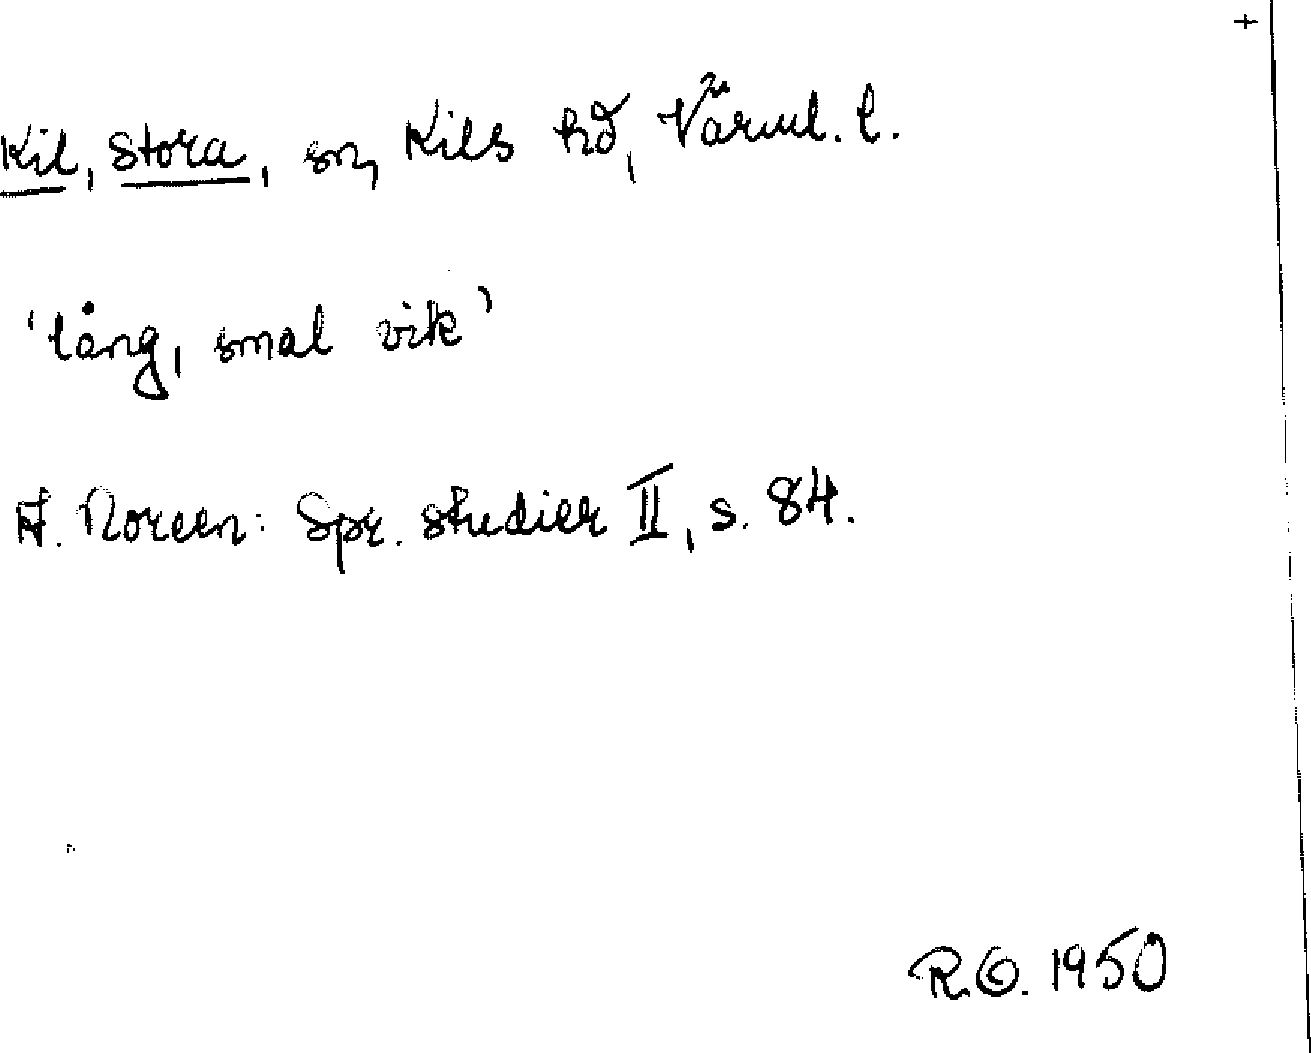 +
Kil, Stora, sn, Kils hd, Värml. l.
'lång, smal vik'
A. Noreen: Spr. studier II, s. 84.
R.O. 1950